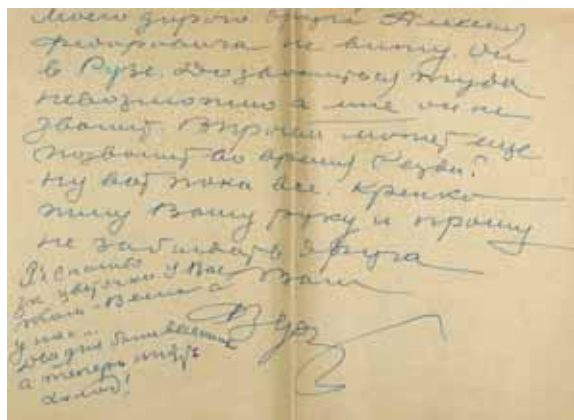 Моего дорогого друга Алексея
Федоровича не вижу. Он
в Рузе. Дозвониться туда
невозможно а мне он не
звонит. Впрочем может еще
позвонит во время
ну вот пока все. Крепко
жму Вашу руку и прошу
не забывать друга
Ваш
P.S. Спасибо
за цветочки у Вас
там - Весна а
у нас...
Два дня были весенние
а теперь опять
холод!